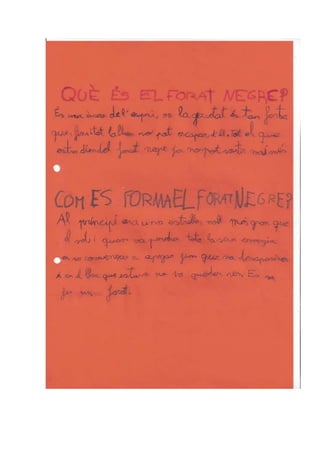 QUÈ ÉS EL FORAT NEGRE?
És una àrea de l'espai, es la gravetat és tan forta
que fins i tot la llum no pot escapar, tot el que
entra dins del forat negre ja no pot sortir mai més
COM ES FORMA EL FORAT NEGRE?
Al principi era una estrella molt més gran que
el sol i quan va perdre tota la seva energia
es va començar a apagar fins que va desaparèixer
i en el lloc que estava no va quedar res. Es va
fer un forat.